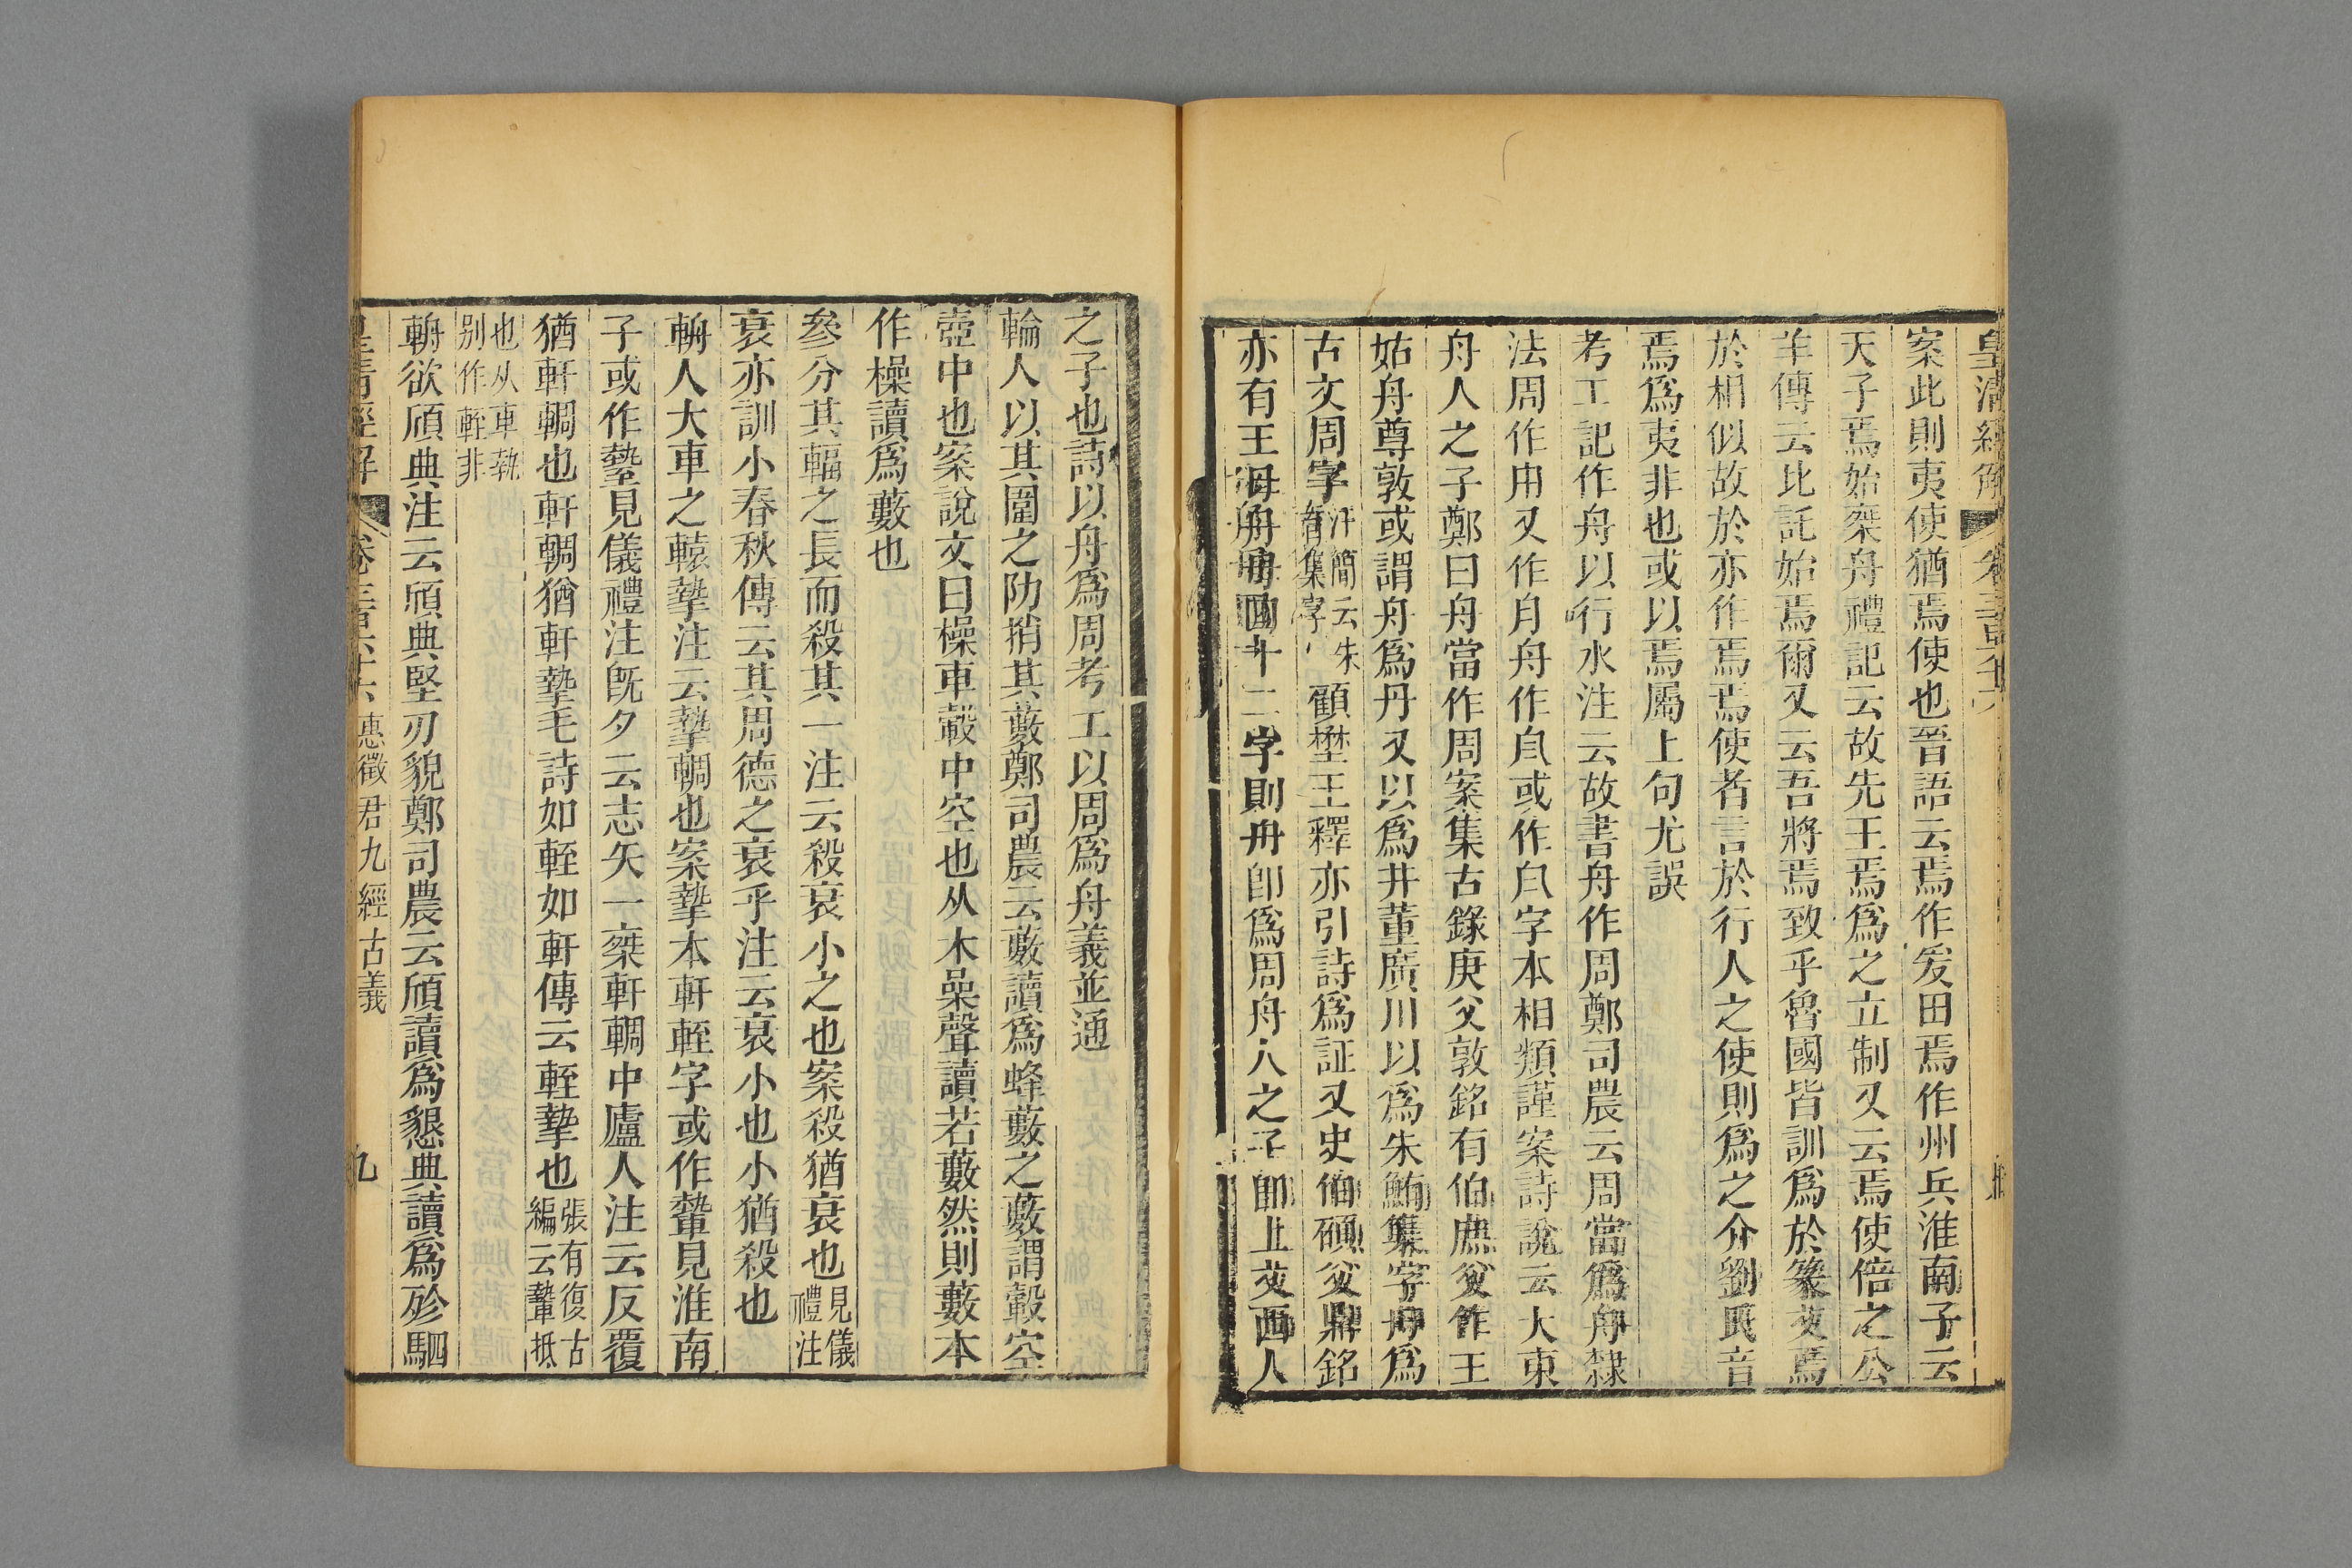 皇清經解 卷三百六十六
案此則夷使猶焉使也晉語云焉作爰田焉作州兵淮南子云
天子焉始椉舟禮記云故先王焉爲之立制又云焉使倍之公
羊傳云比託始焉爾又云吾將焉致乎魯國皆訓爲於篆文焉
於相似故於亦作焉焉使者言於行人之使則爲之介劉氏音
焉爲夷非也或以焉屬上句尤誤
考工記作舟以行水注云故書舟作周鄭司農云周當爲舟隸
法周作用又作月舟作𠂤或作白字本相類謹案詩說云大東
舟人之子鄭曰舟當作周案集古錄庚父敦銘有伯庶父作王
姑舟尊敦或謂舟爲丹又以爲井董廣川以爲朱鮪集字舟爲
古文周字汗簡云朱育集字顧堃王釋亦引詩爲証又史伯碩父鼎銘
亦有王母舟母四十二字則舟卽爲周舟人之子卽上文西人
之子也詩以舟爲周考工以周爲舟義並通
輪人以其圍之阞捎其藪鄭司農云藪讀爲蜂藪之藪謂轂空
壺中也案說文曰橾車轂中空也从木喿聲讀若藪然則藪本
作橾讀爲藪也
參分其輻之長而殺其一注云殺衰小之也案殺猶衰也見儀禮注
衰亦訓小春秋傳云其周德之衰乎注云衰小也小猶殺也
輈人大車之轅摯注云摯輖也案摯本軒輊字或作䡹見淮南
子或作墊見儀禮注旣夕云志矢一椉軒輖中廬人注云反覆
猶軒輖也軒輖猶軒摯毛詩如輊如軒傳云輊摯也張有復古編云䡹抵
也从車執別作輊非
輈欲頎典注云頎典堅刃貌鄭司農云頎讀爲懇典讀爲殄駟
皇清經解 卷三百六十六 惠徵君九經古義 九